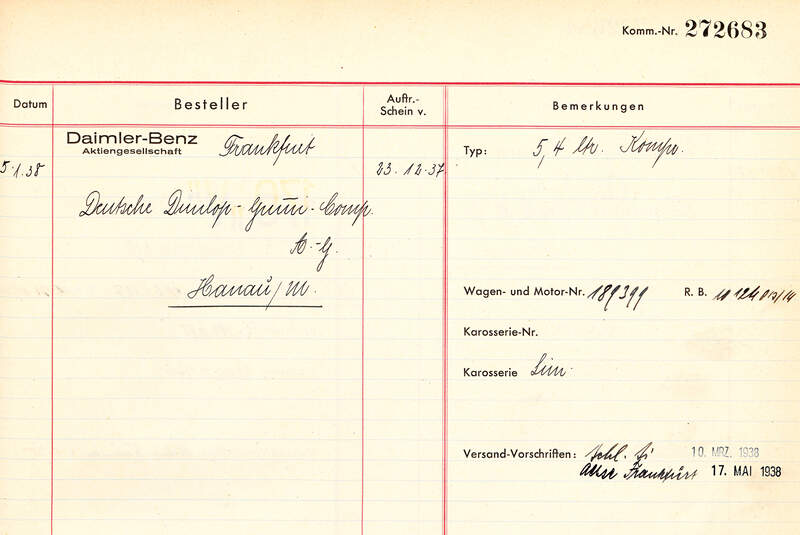 Komm.-Nr. 272683
Datum Besteller Auftr.-Schein v. Bemerkungen
Daimler-Benz Aktiengesellschaft Frankfurt
5.1.38
23.12.37
Deutsche Dunlop-Gummi-Comp.
A.-G.
Hanau/M.
Typ: 5,4 ltr. Komp.
Wagen- und Motor-Nr. 189399 R. B.
Karosserie-Nr.
Karosserie Lim.
Versand-Vorschriften: 10. MRZ. 1938
Frankfurt 17. MAI 1938